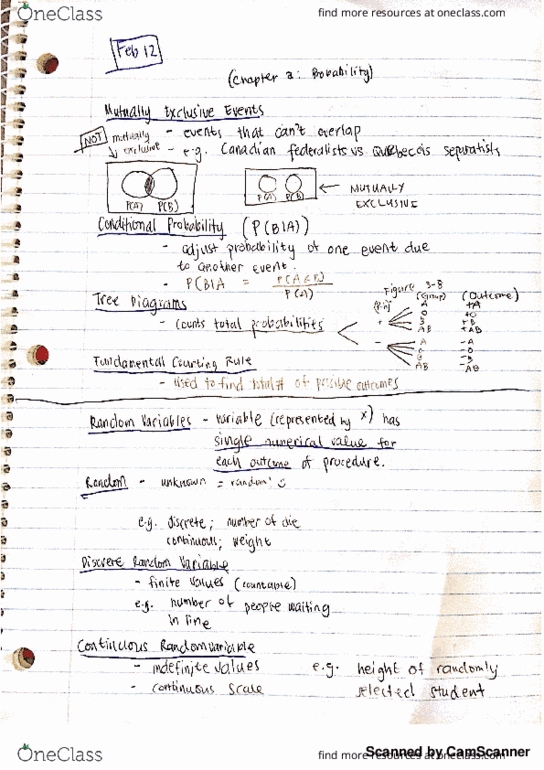 OneClass
find more resources at oneclass.com
Feb 12
(Chapter 3: Probability)
Mutually Exclusive Events
NOT mutually exclusive
- events that can't overlap
- e.g. Canadian federalists vs Quebecois separatists
P(A) P(B)
P(A) P(B)
MUTUALLY
EXCLUSIVE
Conditional Probability (P(B|A))
- adjust probability of one event due
to another event.
- P(B|A =
P(A)
Tree Diagrams
- counts total probabilities
Figure 3-8
(Group) (Outcome)
+ A +A
O +O
B +B
AB +AB
- A -A
O -O
B -B
AB -AB
Fundamental Counting Rule
- used to find total # of possible outcomes
Random Variables - variable (represented by x) has
single numerical value for
each outcome of procedure.
Random - unknown = random!
e.g. discrete; number of die
continuous; weight
Discrete Random Variable
- finite values (countable)
e.g. number of people waiting
in line
Continuous Random Variable
- indefinite values e.g. height of randomly
- continuous scale selected student
OneClass
find more resources at oneclass.com
Scanned by CamScanner